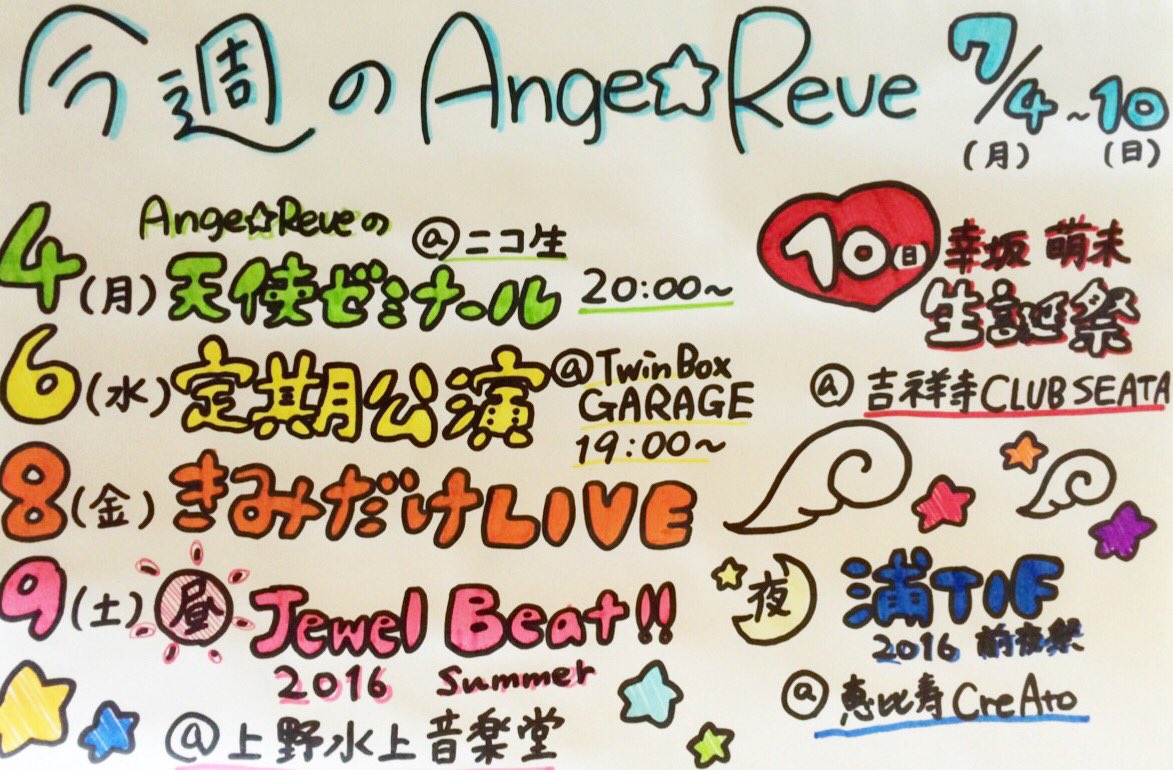 今週のAnge☆Reve 7/4~10
(月) (日)
4(月) Ange☆Reveの
天使ゼミナール @ニコ生
20:00~
6(水) 定期公演 @TwinBox
GARAGE
19:00~
8(金) きみだけLIVE
9(土) 昼 Jewel Beat!!
2016 Summer
@上野水上音楽堂
夜 浦TIF
2016 前夜祭
@恵比寿CreAto
10日 幸坂 萌未
生誕祭
@吉祥寺CLUB SEATA